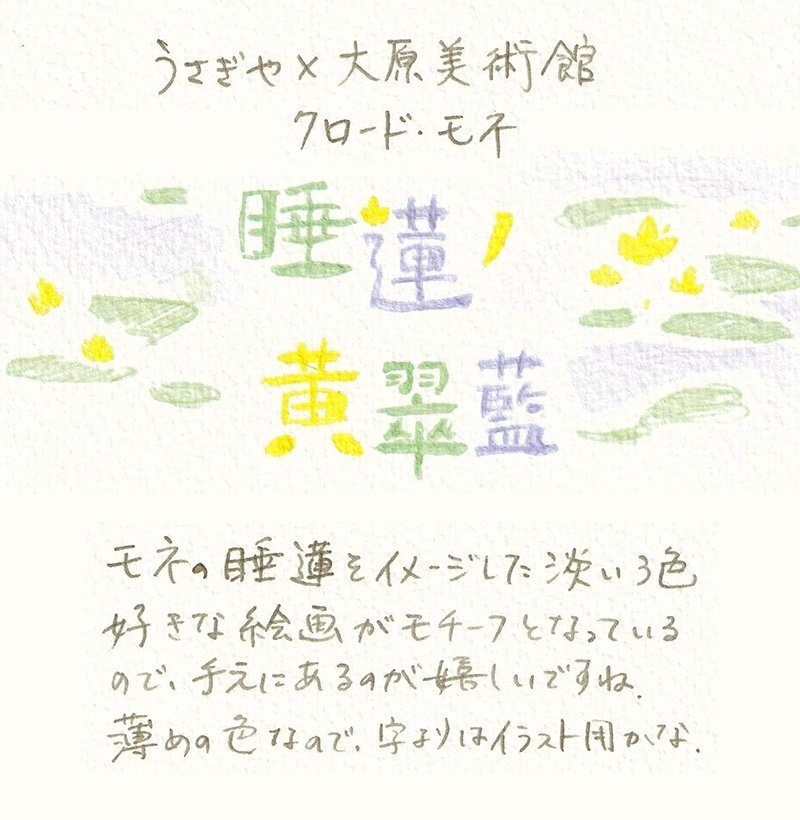 うさぎや×大原美術館
クロード・モネ
睡蓮ノ
黄翠藍
モネの睡蓮をイメージした淡い3色
好きな絵画がモチーフとなっている
ので、手元にあるのが嬉しいですね.
薄めの色なので、字よりはイラスト用かな.